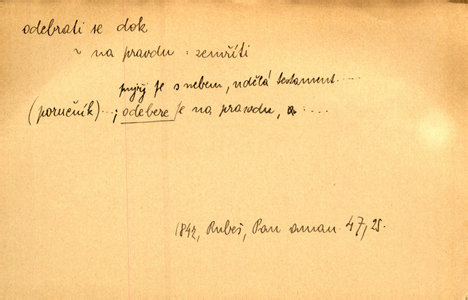 odebrati se dok
~ na pravdu : zemříti
je s nebem, udělá testament ....
(poručník)...; odebere se na pravdu, a ....
1842, Rubeš, Pan aman. 47, 25.